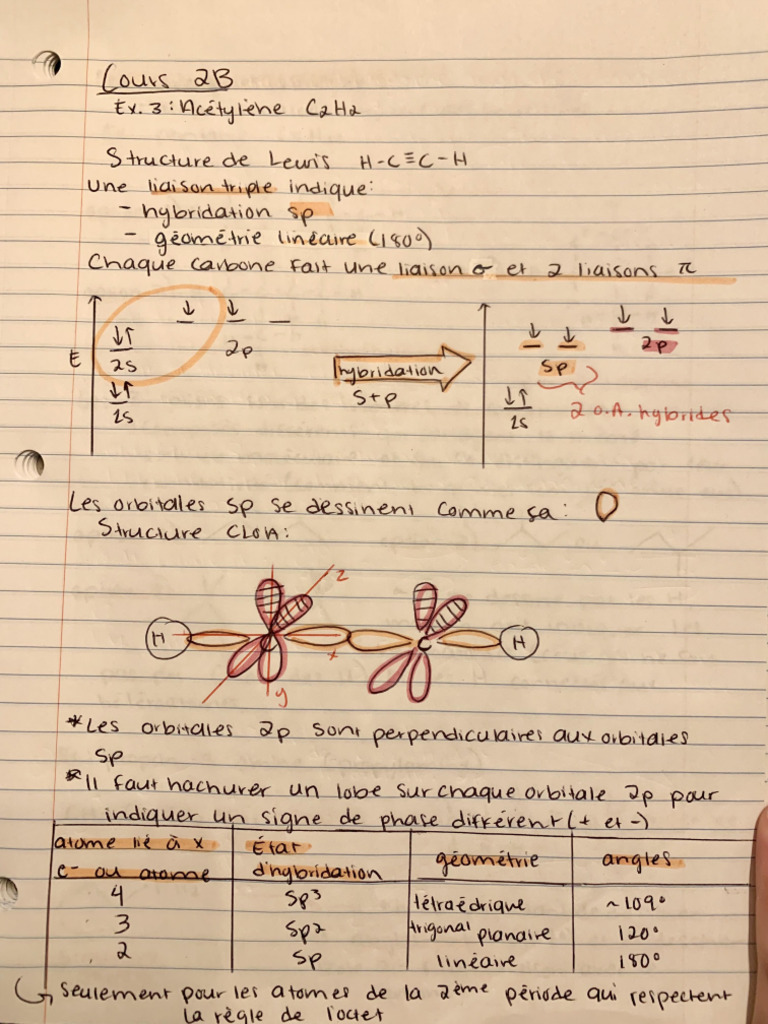 Cours 2B
Ex. 3 : Acétylène C2H2
Structure de Lewis H-C≡C-H
Une liaison triple indique:
- hybridation sp
- géométrie linéaire (180°)
Chaque carbone fait une liaison σ et 2 liaisons π
E
↓↑ ↓ ↓
2s 2p
↓↑
1s
hybridation
s+p
↓ ↓ ↓ ↓
sp 2p
↓↑
1s
2 O.A. hybrides
Les orbitales sp se dessinent comme ça:
Structure CLOA:
z
H C C H
x
y
*Les orbitales 2p sont perpendiculaires aux orbitales
sp
*Il faut hachurer un lobe sur chaque orbitale 2p pour
indiquer un signe de phase différent (+ et -)
atome lié à x État géométrie angles
e- ou atome d'hybridation
4 sp3 tétraédrique ~109°
3 sp2 trigonal planaire 120°
2 sp linéaire 180°
↳ seulement pour les atomes de la 2ème période qui respectent
la règle de l'octet